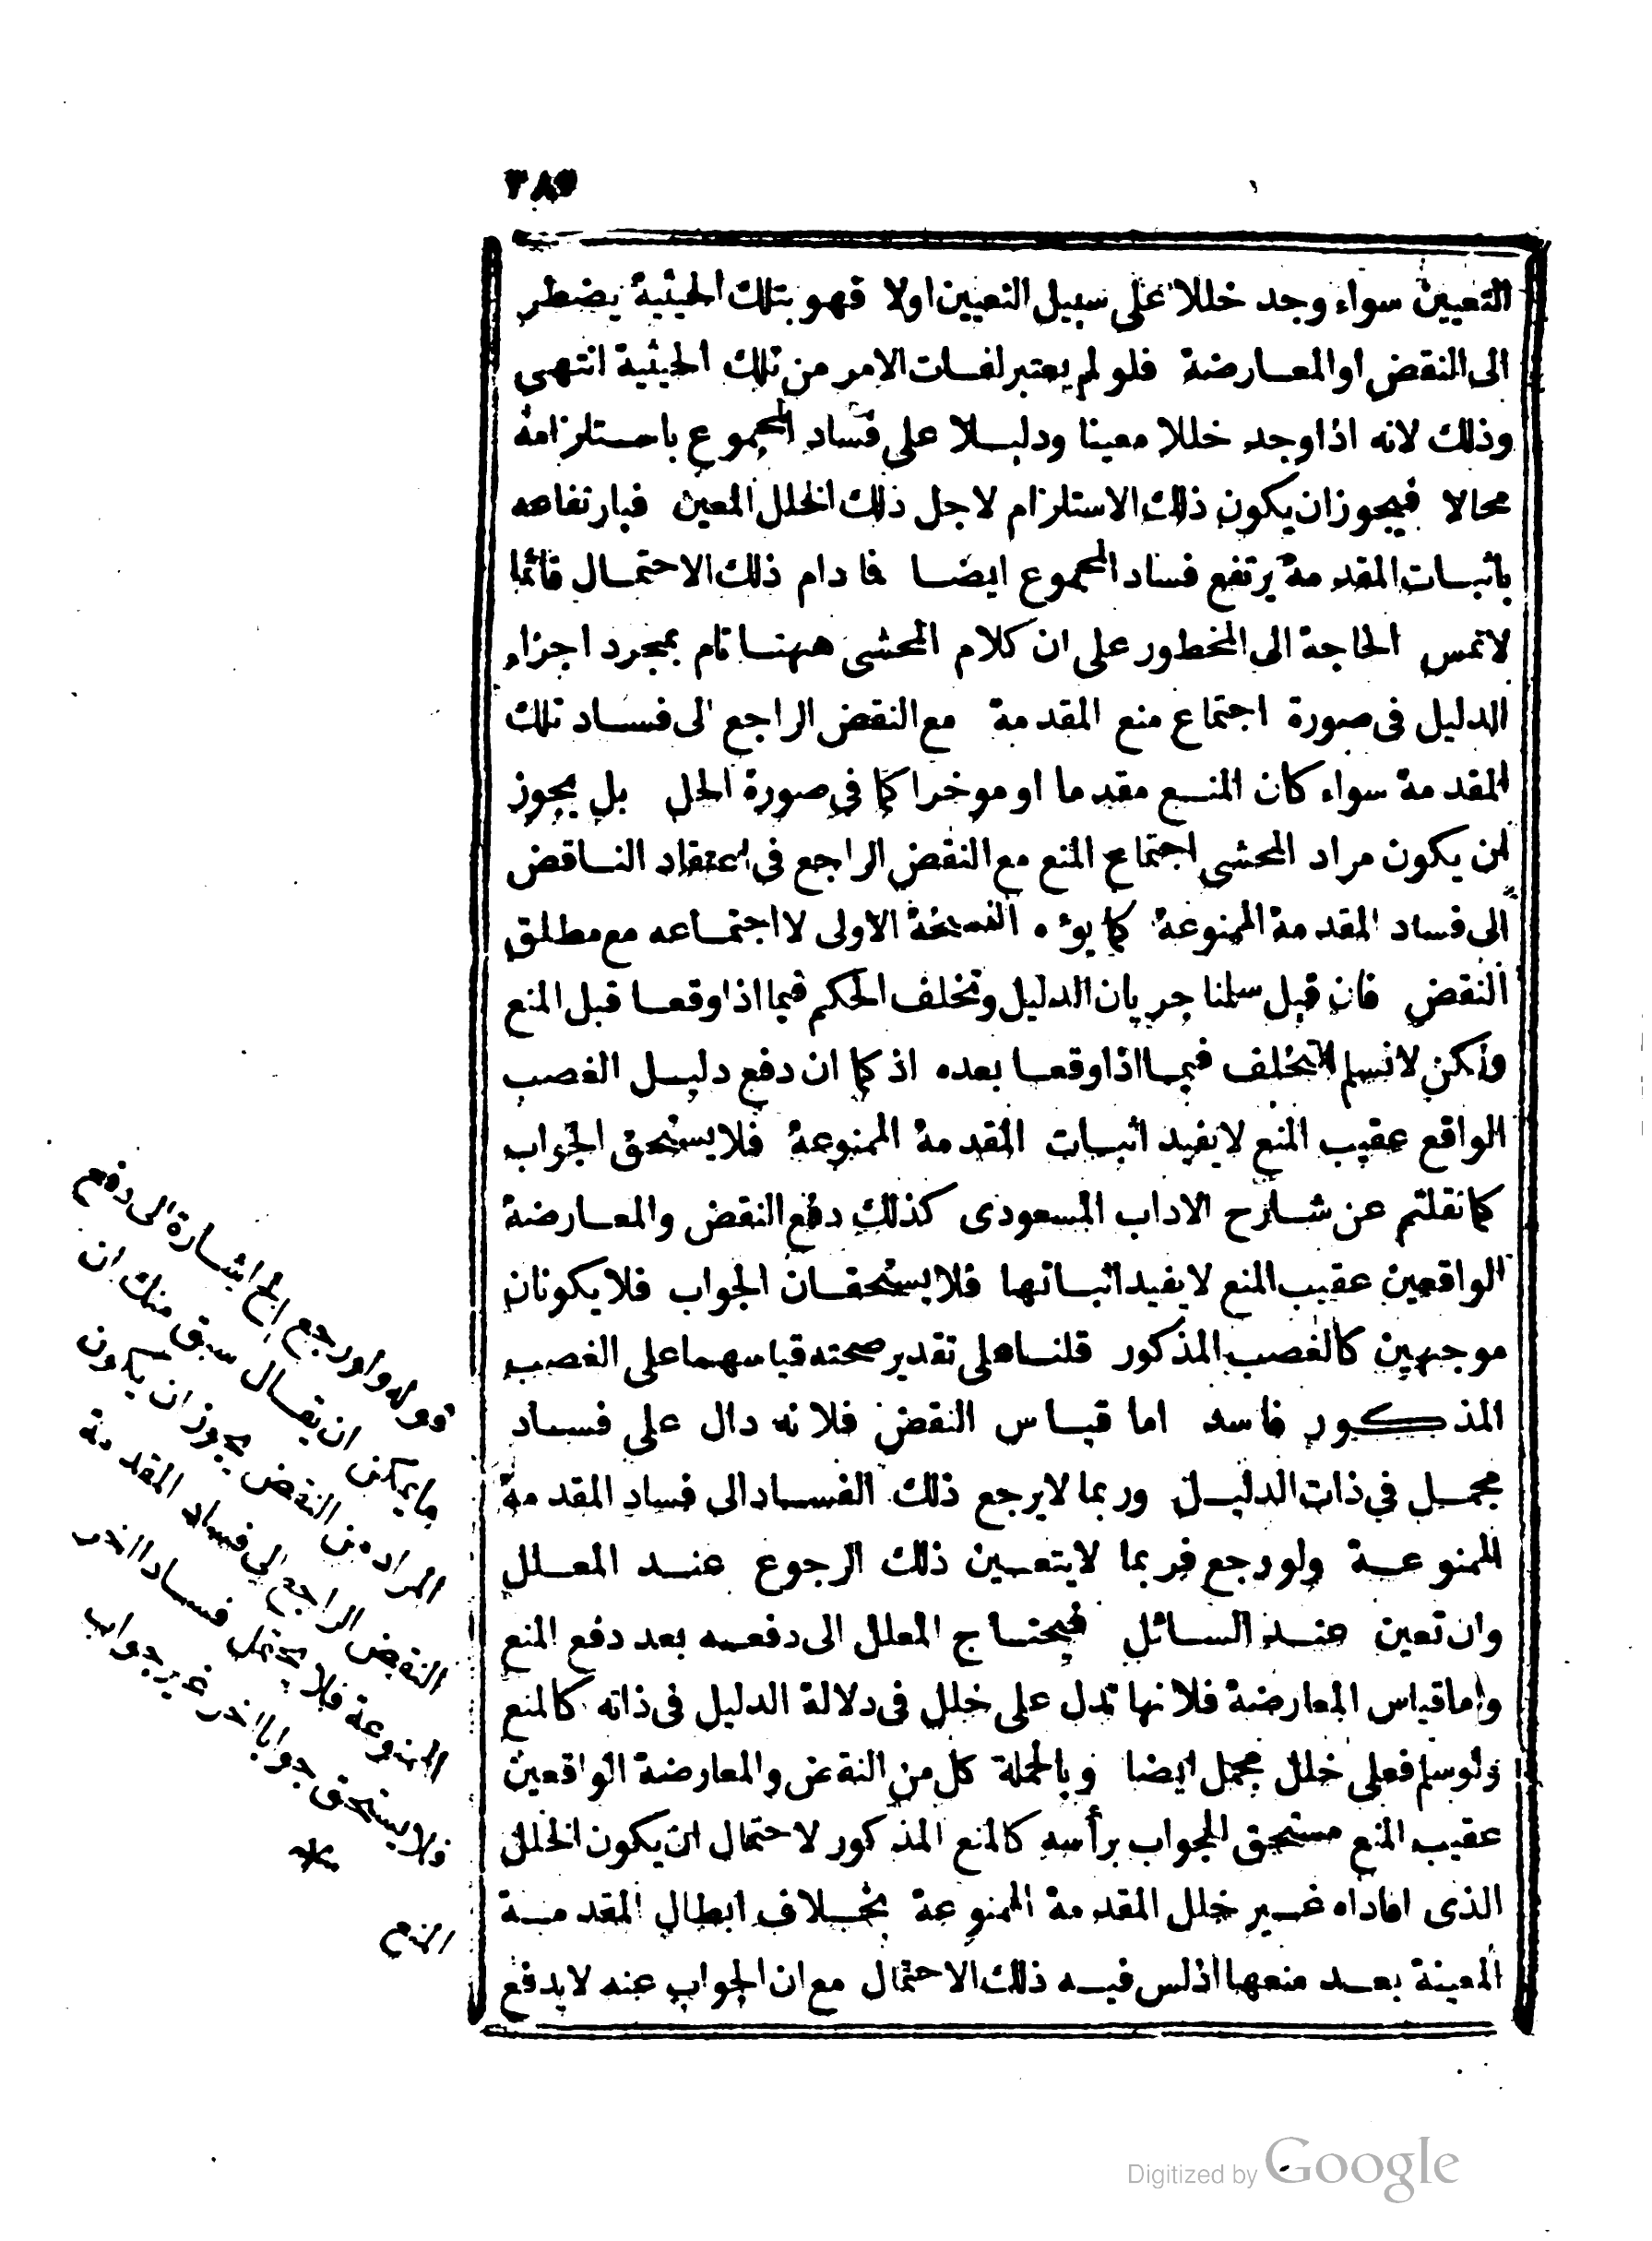 ٣٨٩
التعيين سواء وجد خللا على سبيل التعيين اولا فهو بتلك الحيثية يضطر
الى النقض او المعارضة فلو لم يعتبر لفات الامر من تلك الحيثية انتهى
وذلك لانه اذا وجد خللا معينا ودليلا على فساد المجموع باستلزامه
محالا فيجوز ان يكون ذلك الاستلزام لاجل ذلك الخلل المعين فبارتفاعه
باثبات المقدمة يرتفع فساد المجموع ايضا فما دام ذلك الاحتمال قائما
لا تمس الحاجة الى المخطور على ان كلام المحشى ههنا تام بمجرد اجزاء
الدليل فى صورة اجتماع منع المقدمة مع النقض الراجع الى فساد تلك
المقدمة سواء كان المنع مقدما او موخرا كما فى صورة الحل بل يجوز
ان يكون مراد المحشى اجتماع المنع مع النقض الراجع فى اعتقاد الناقض
الى فساد المقدمة الممنوعة كما يؤه النسخة الاولى لا اجتماعه مع مطلق
النقض فان قيل سلمنا جريان الدليل وتخلف الحكم فيما اذا وقعا قبل المنع
ولكن لا نسلم التخلف فيما اذا وقعا بعده اذ كما ان دفع دليل الغصب
الواقع عقيب المنع لا يفيد اثبات المقدمة الممنوعة فلا يستحق الجواب
كما نقلتم عن شارح الاداب المسعودى كذلك دفع النقض والمعارضة
الواقعين عقيب المنع لا يفيد اثباتها فلا يستحقان الجواب فلا يكونان
موجهين كالغصب المذكور قلنا على تقدير صحته قياسهما على الغصب
المذكور فاسد اما قياس النقض فلانه دال على فساد
مجمل فى ذات الدليل وربما لا يرجع ذلك الفساد الى فساد المقدمة
الممنوعة ولو رجع فربما لا يتعين ذلك الرجوع عند المعلل
وان تعين عند السائل فيحتاج المعلل الى دفعه بعد دفع المنع
واما قياس المعارضة فلانها تدل على خلل فى دلالة الدليل فى ذاته كالمنع
ولو سلم فعلى خلل مجمل ايضا وبالجملة كل من النقض والمعارضة الواقعين
عقيب المنع مستحق الجواب برأسه كالمنع المذكور لاحتمال ان يكون الخلل
الذى افاداه غير خلل المقدمة الممنوعة بخلاف ابطال المقدمة
المعينة بعد منعها اذ ليس فيه ذلك الاحتمال مع ان الجواب عنه لا يدفع
قوله ولو رجع الخ اشارة الى دفع
ما يمكن ان يقال سبق منك ان
المراد من النقض يجوز ان يكون
النقض الراجع الى فساد المقدمة
الممنوعة فلا يحتمل فسادا اخر
فلا يستحق جوابا اخر غير جواب
*
المنع
Digitized by Google